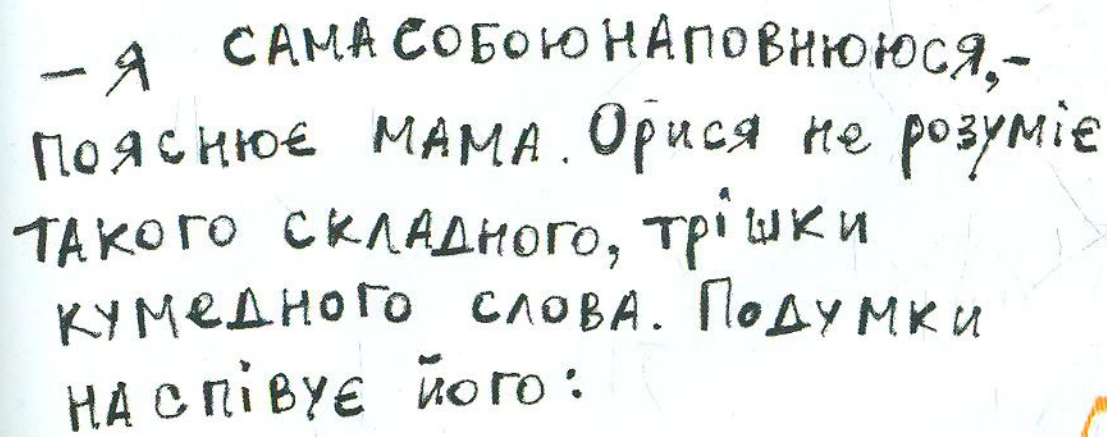 – Я САМАСОБОЮНАПОВНЮЮСЯ,–
ПОЯСНЮЄ МАМА. Орися не розуміє
ТАКОГО СКЛАДНОГО, ТРІШКИ
КУМЕДНОГО СЛОВА. ПОДУМКИ
НАСПІВУЄ ЙОГО: